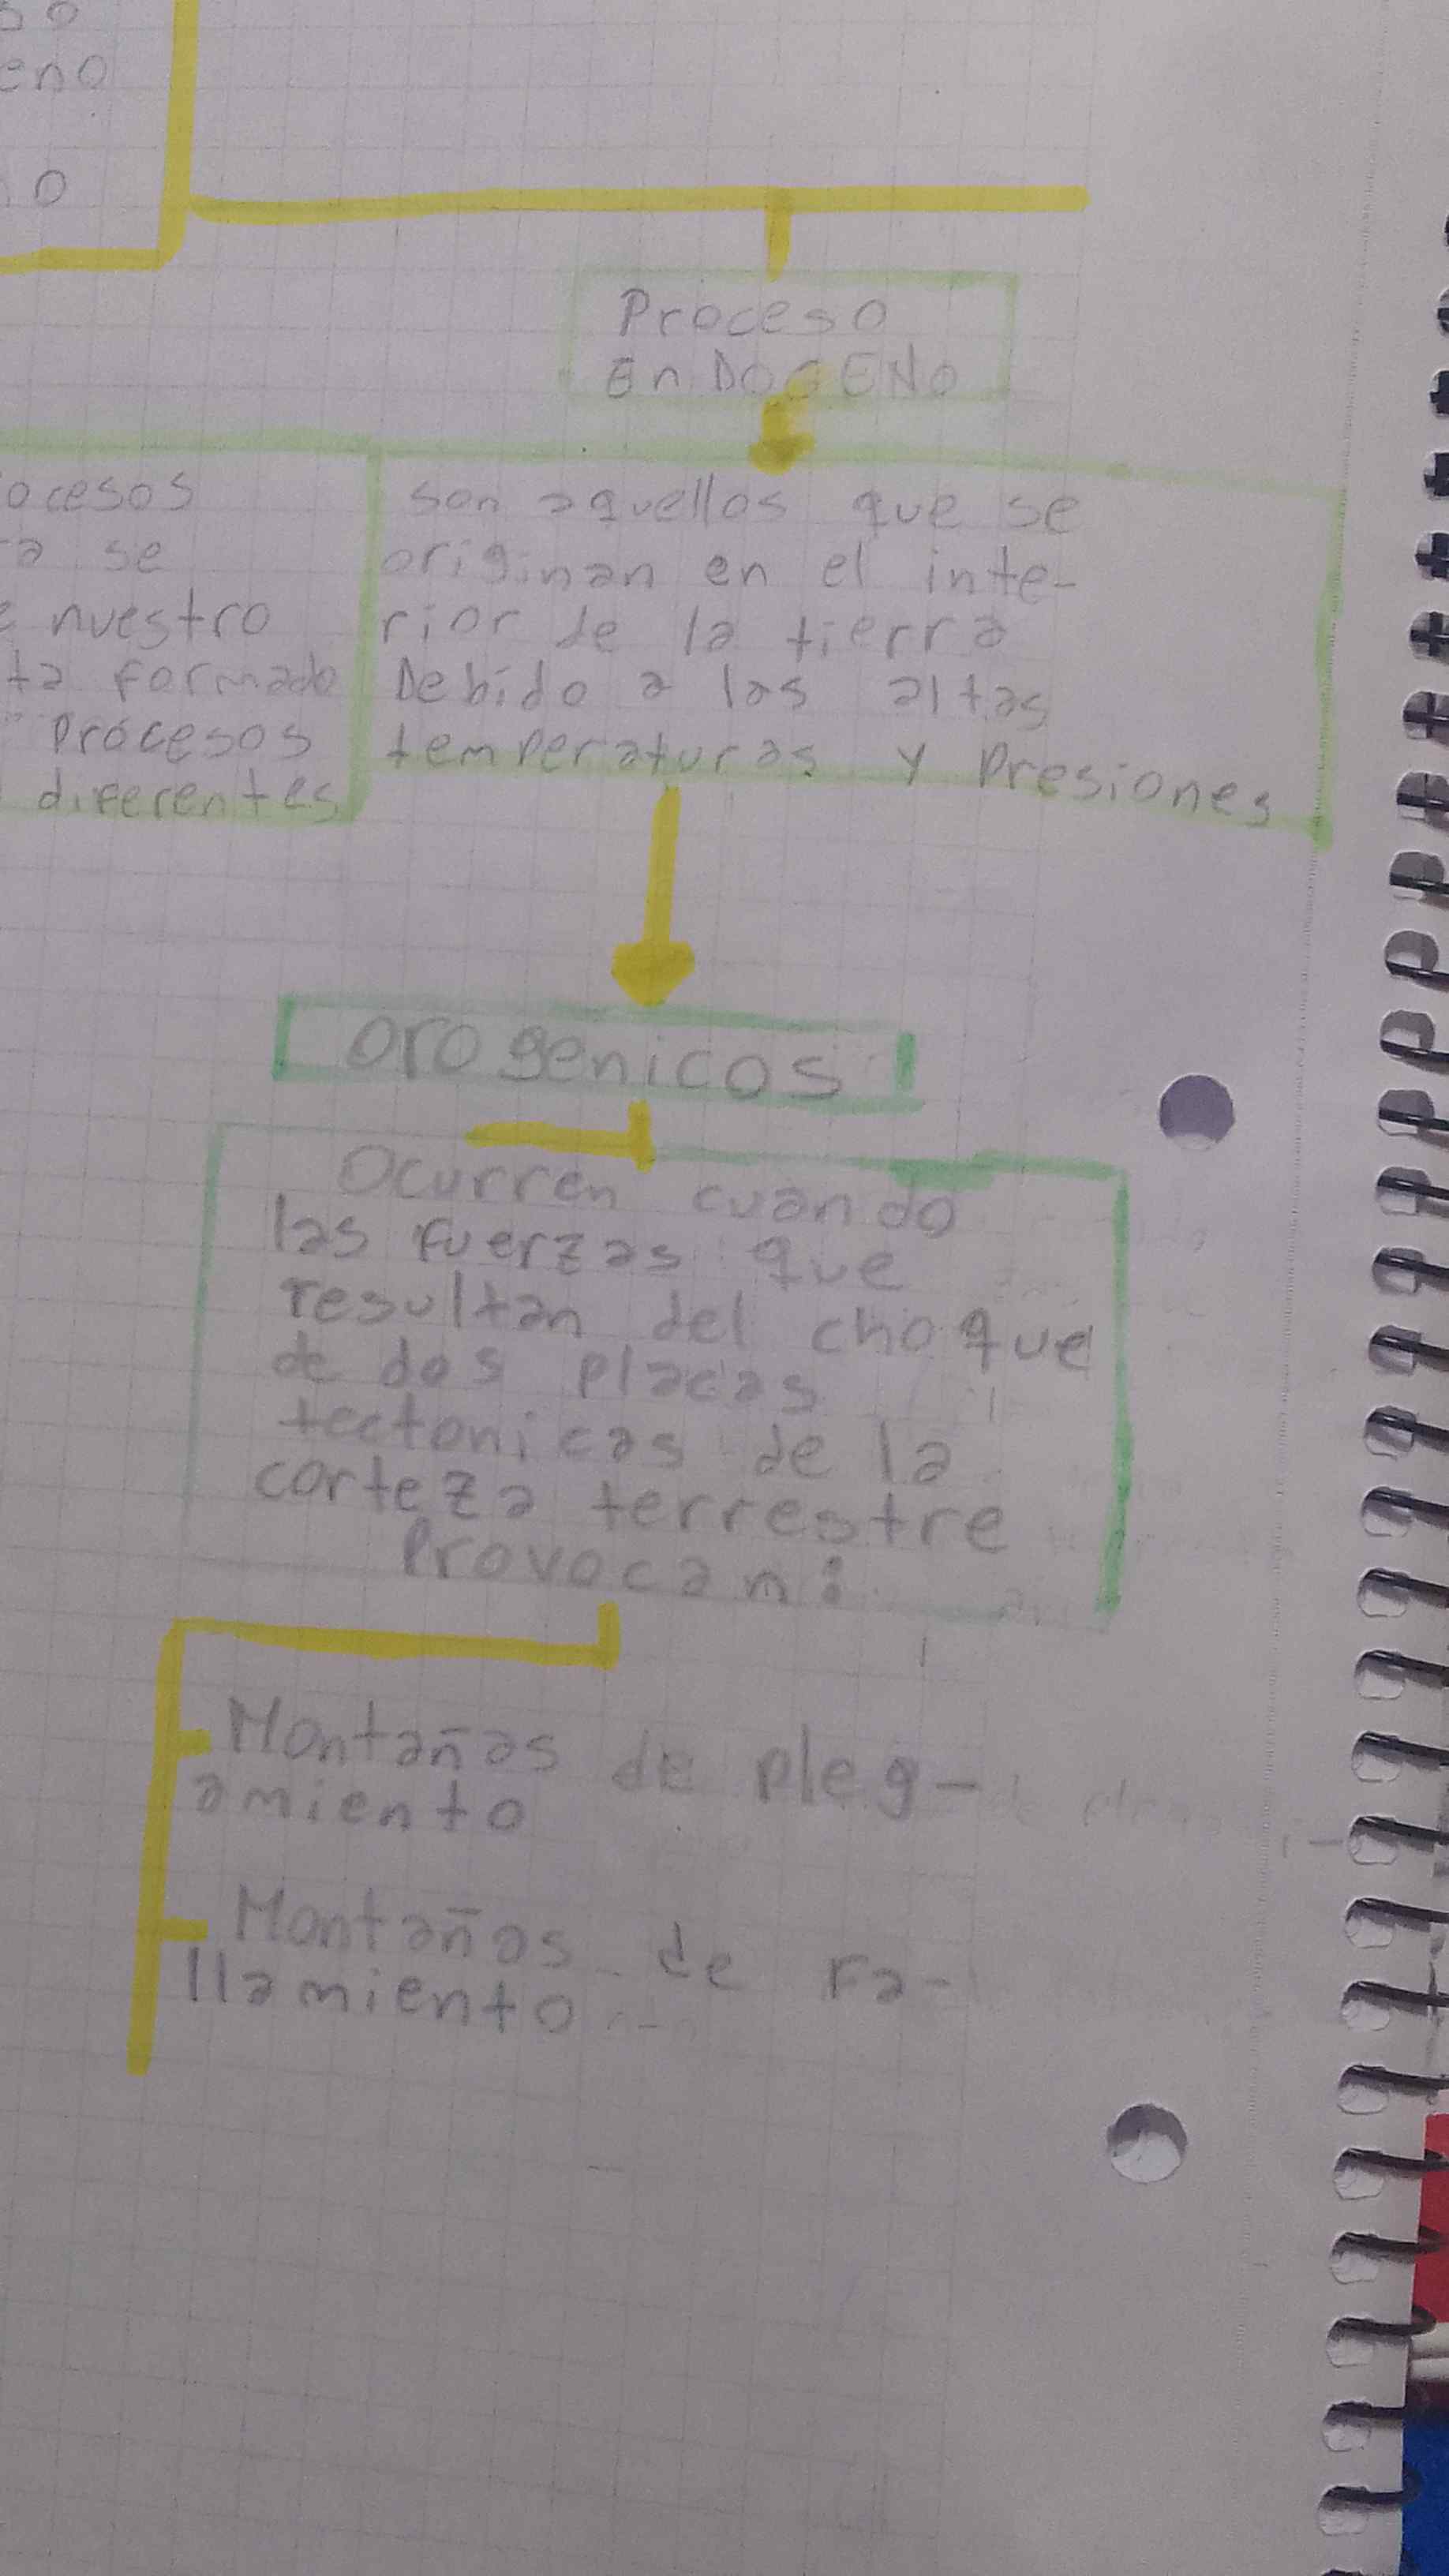 eno
o
Proceso
EnDOGENO
ocesos
a se
nuestro
ta formado
procesos
diferentes
son aquellos que se
originan en el inte-
rior de la tierra
Debido a las altas
temperaturas y Presiones
orogenicos
Ocurren cuando
las fuerzas que
resultan del choque
de dos placas
tectonicas de la
corteza terrestre
Provocan:
Montañas de pleg-
amiento
Montañas de fa-
llamiento